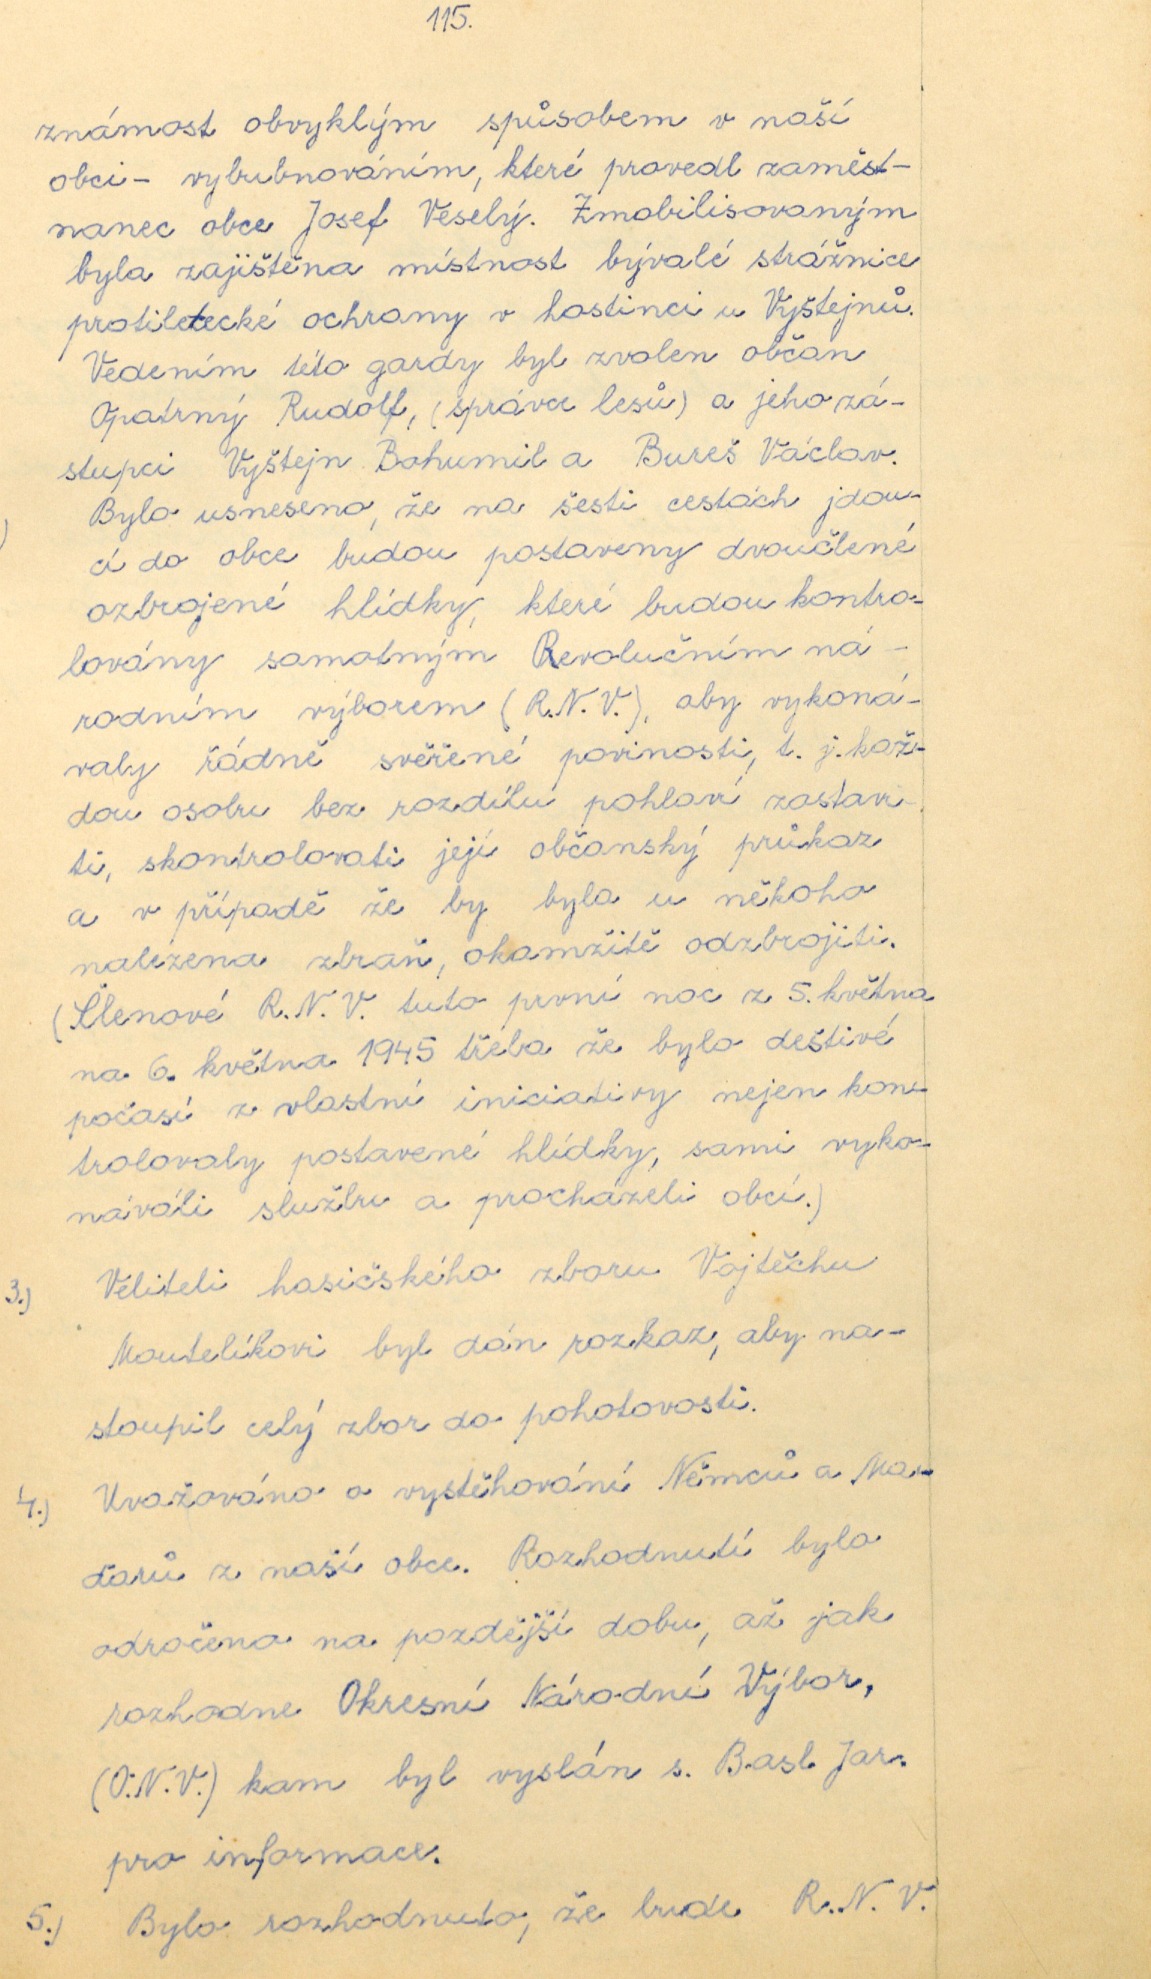 115.
známost obvyklým spůsobem v naší
obci - vybubnováním, které provedl zaměst-
nanec obce Josef Veselý. Zmobilisovaným
byla zajištěna místnost bývalé strážnice
protiletecké ochrany v hostinci u Vyštejnů.
Vedením této gardy byl zvolen občan
Opatrný Rudolf, (správce lesů) a jeho zá-
stupci Vyštejn Bohumil a Bureš Václav.
Bylo usneseno, že na šesti cestách jdou-
cí do obce budou postaveny dvoučlené
ozbrojené hlídky, které budou kontro-
lovány samotným Revolučním ná-
rodním výborem (R.N.V.), aby vykoná-
valy řádně svěřené povinosti, t. j. kaž-
dou osobu bez rozdílu pohlaví zastavi-
ti, skontrolovati její občanský průkaz
a v případě že by byla u někoho
nalezena zbraň, okamžitě odzbrojiti.
(Členové R.N.V. tuto první noc z 5. května
na 6. května 1945 třeba že bylo deštivé
počasí z vlastní iniciativy nejen kon-
trolovaly postavené hlídky, sami vyko-
návali službu a procházeli obcí.)
3.) Veliteli hasičského zboru Vojtěchu
Moutelíkovi byl dán rozkaz, aby na-
stoupil celý zbor do pohotovosti.
4.) Uvažováno o vystěhování Němců a Ma-
ďarů z naší obce. Rozhodnutí bylo
odročeno na pozdější dobu, až jak
rozhodne Okresní Národní Výbor,
(O.N.V.) kam byl vyslán s. Basl Jar.
pro informace.
5.) Bylo rozhodnuto, že bude R.N.V.